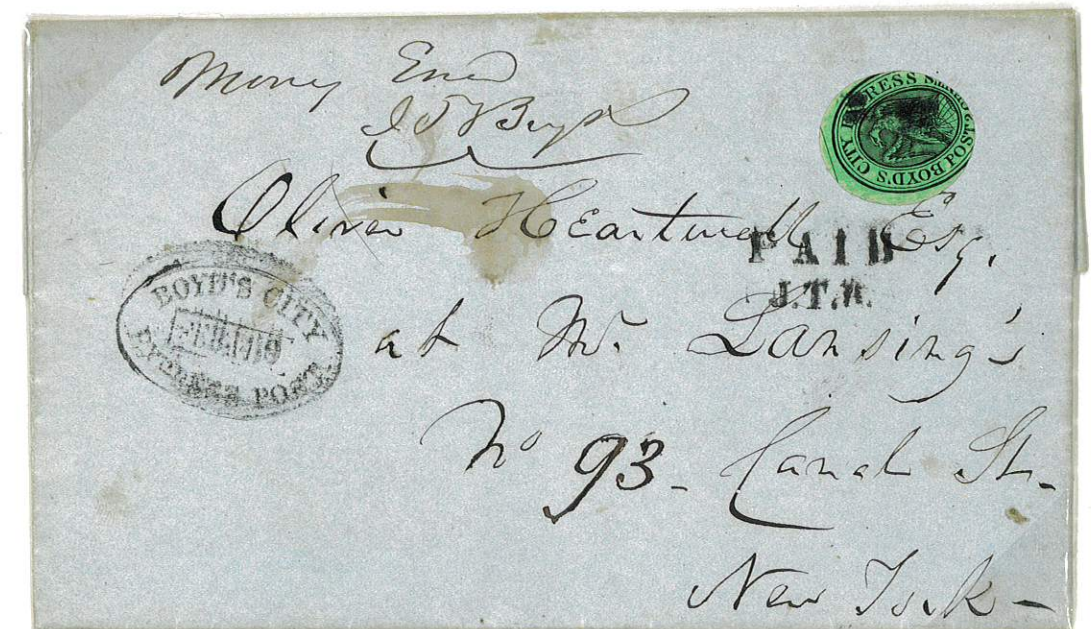 Money Encd
BOYD'S CITY EXPRESS POST
Oliver Heartwell Esq.
PAID
J.T.B.
BOYD'S CITY
EXPRESS POST.
at Mr. Lansing's
No 93 - Canal St. -
New York -